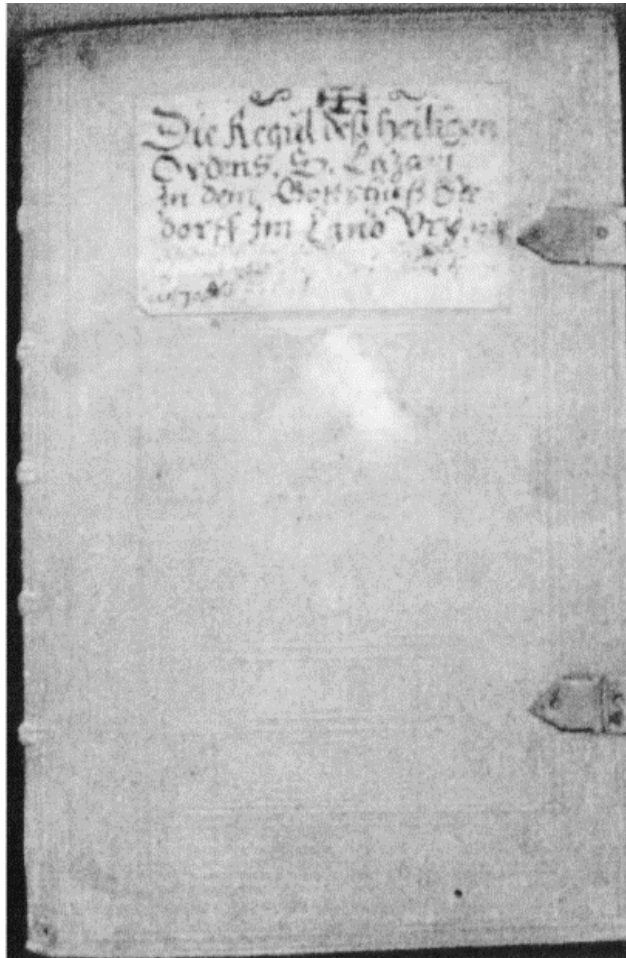 Die Regul deß heiligen
Ordens. S. Lazari
In dem Gottshuß See
dorff Im Land Vry.